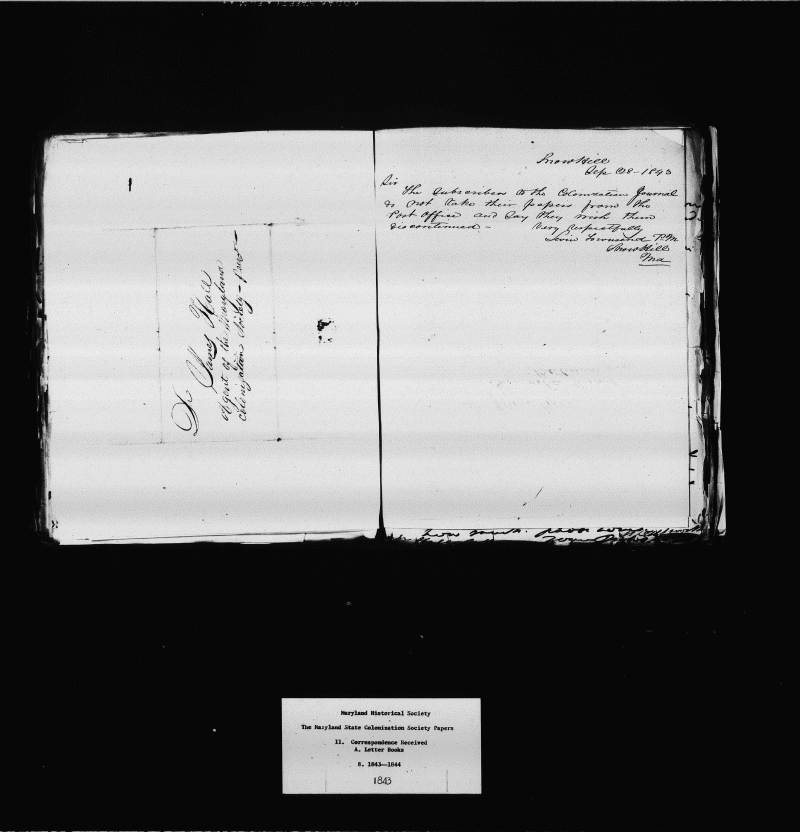 Dr James Hall
Agent of the Maryland
Colonization Society -
Snow Hill
Sep 28 - 1843
Sir
The Subscribers to the Colonization Journal
do not take their papers from the
Post Office and Say they wish them
discontinued - Very respectfully
Levin Townsend P.M
Snow Hill
Md
Maryland Historical Society
The Maryland State Colonization Society Papers
11. Correspondence Received
A. Letter Books
8. 1843--1844
1843